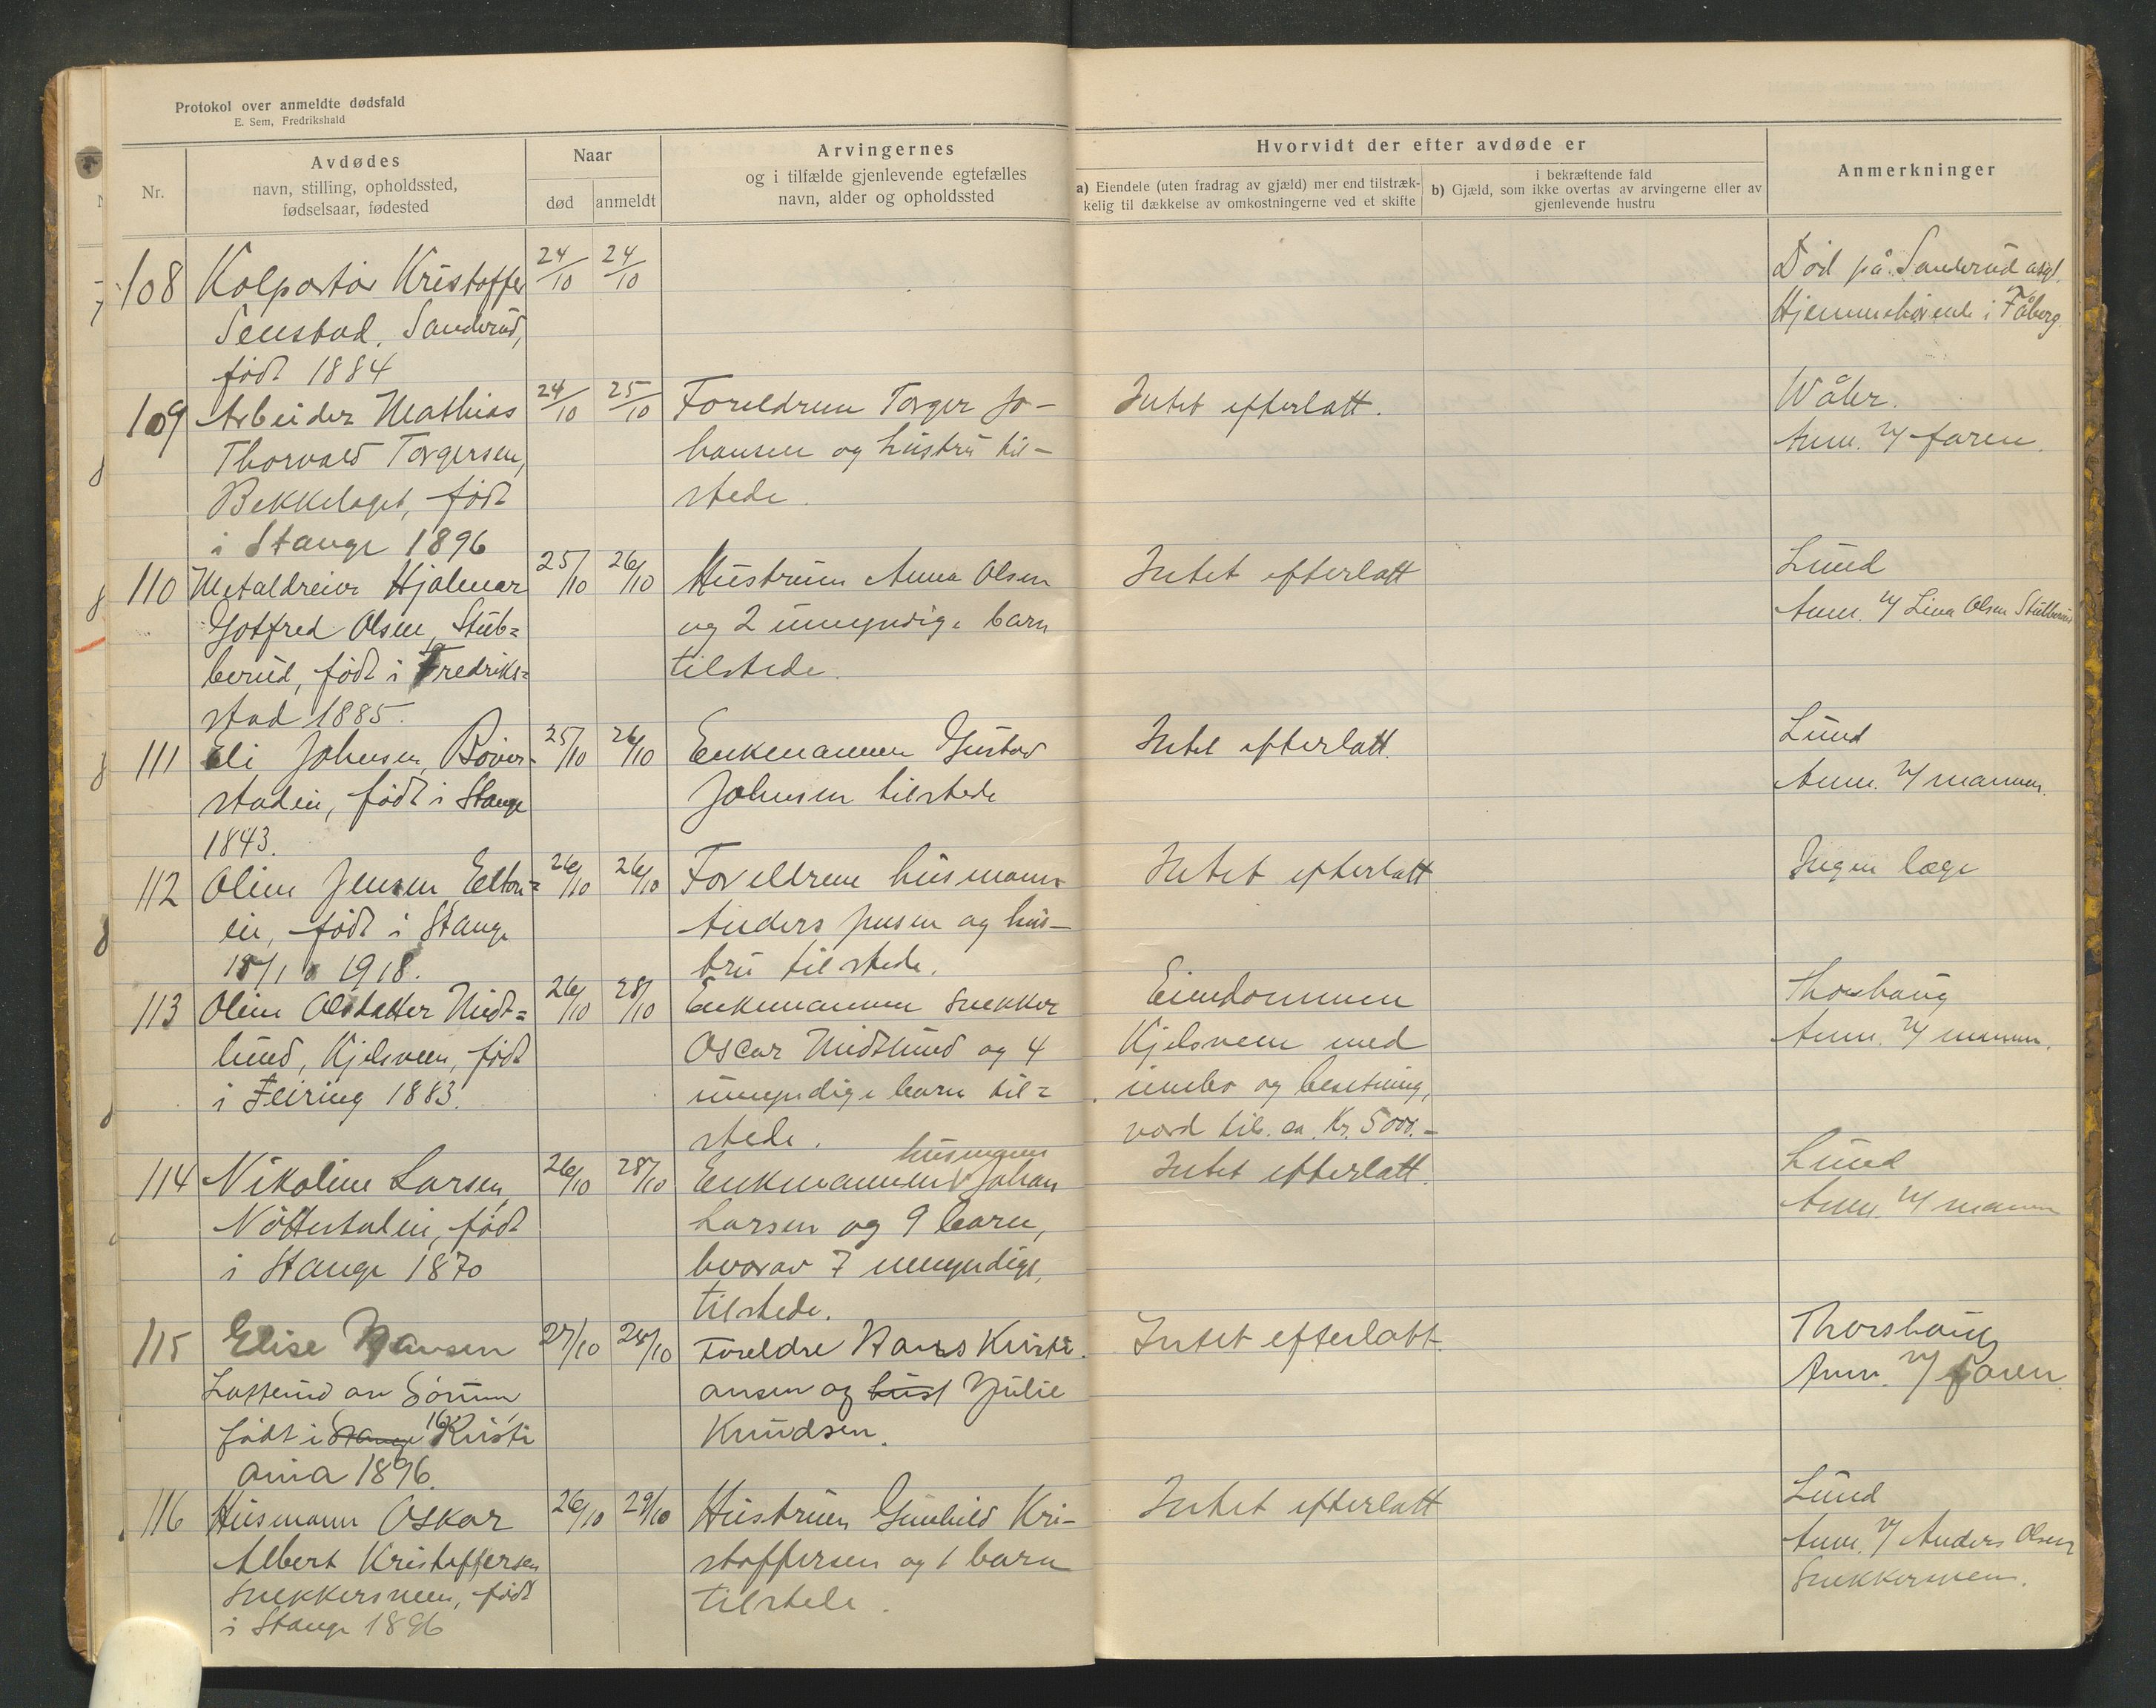 Protokol over anmeldte dødsfald
E. Sem, Fredrikshald
Nr.
Avdødes
navn, stilling, opholdssted,
fødselsaar, fødested
Naar
død
anmeldt
Arvingernes
og i tilfælde gjenlevende egtefælles
navn, alder og opholdssted
Hvorvidt der efter avdøde er
a) Eiendele (uten fradrag av gjæld) mer end tilstræk-
kelig til dækkelse av omkostningerne ved et skifte
i bekræftende fald
b) Gjæld, som ikke overtas av arvingerne eller av
gjenlevende hustru
Anmerkninger
108
Kolportør Kristoffer
Senstad, Sanderud,
født 1884
24/10
24/10
Død på Sanderud asyl.
Hjemmehørende i Fåberg.
109
Arbeider Mathias
Thorvald Torgersen,
Bekkelaget, født
i Stange 1896
24/10
25/10
Foreldrene Torger Jo-
hansen og hustru til-
stede.
Intet efterlatt.
Wåler.
Anm. v/ faren.
110
Metaldreier Hjalmar
Gotfred Olsen, Stub=
berud, født i Fredriks=
stad 1885.
25/10
26/10
Hustruen Anna Olsen
og 2 umyndige barn
tilstede.
Intet efterlatt
Lund
Anm. v/ Lina Olsen Stubberud
111
Eli Johnsen,
stadeie, født i Stange
1843.
25/10
26/10
Enkemannen Gustav
Johnsen tilstede
Intet efterlatt.
Lund
Anm. v/ mannen.
112
Oline Jensen,
eie, født i Stange
1918.
26/10
26/10
Foreldrene husmann
Anders Jensen og hus-
tru tilstede.
Intet efterlatt
Ingen læge
113
Oline Olsdatter Midt=
lund, Kjelsveen, født
i Feiring 1883.
26/10
28/10
Enkemannen snekker
Oscar Midtlund og 4
umyndige barn til=
stede.
Eiendommen
Kjelsveen med
innbo og besetning,
verd til. ca. Kr. 5000.-
Thorshaug
Anm. v/ mannen.
114
Nikoline Larsen,
Nøttestadeie, født
i Stange 1870
26/10
28/10
husmann
Enkemannen Johan
Larsen og 9 barn,
hvorav 7 umyndige,
tilstede.
Intet efterlatt.
Lund
Anm. v/ mannen
115
Elise Hansen
av Sørum
født i Stange Kristi
ania 1896.
27/10
28/10
Foreldre Hans Kristi.
ansen og hust Julie
Knudsen.
Intet efterlatt.
Thorshaug
Anm. v/ faren.
116
Husmann Oskar
Albert Kristoffersen
Snekkersveen, født
i Stange 1896
26/10
29/10
Hustruen Gunhild Kri-
stoffersen og 1 barn
tilstede.
Intet efterlatt
Lund
Anm. v/ Anders Olsen
Snekkersveen.